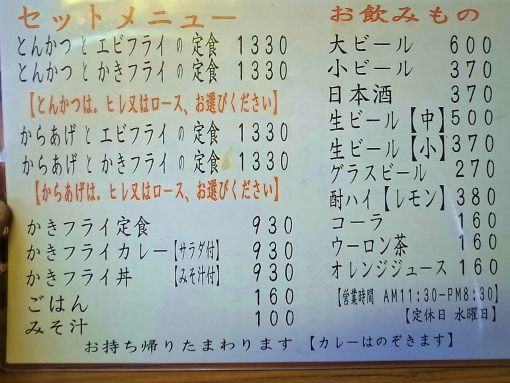 セットメニュー
とんかつとエビフライの定食 1330
とんかつとかきフライの定食 1330
【とんかつは。ヒレ又はロース、お選びください】
からあげとエビフライの定食 1330
からあげとかきフライの定食 1330
【からあげは。ヒレ又はロース、お選びください】
かきフライ定食 930
かきフライカレー【サラダ付】 930
かきフライ丼 【みそ汁付】 930
ごはん 160
みそ汁 100
お飲みもの
大ビール 600
小ビール 370
日本酒 370
生ビール【中】500
生ビール【小】370
グラスビール 270
酎ハイ【レモン】380
コーラ 160
ウーロン茶 160
オレンジジュース 160
【営業時間 AM11:30-PM8:30】
【定休日 水曜日】
お持ち帰りたまわります 【カレーはのぞきます】